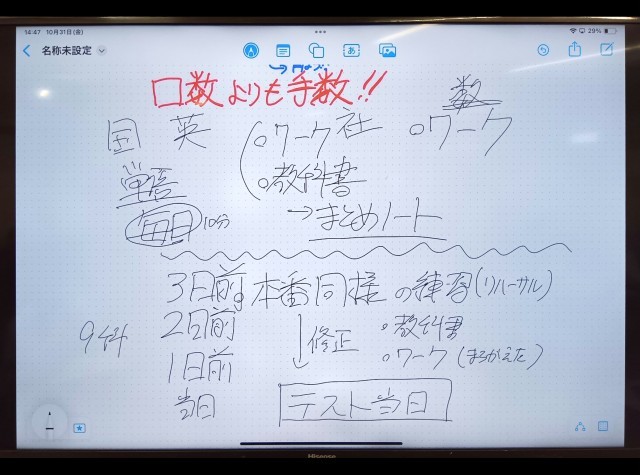 14:47 10月31日(金)
29%
名称未設定
あ
口数よりも手数!!
国 英 ○ワーク 社 数 ○ワーク
単語 ○教科書
毎日 10分 →まとめノート
3日前 本番同様の練習(リハーサル)
9科 2日前 ↓修正 ・教科書
1日前 ・ワーク(まちがえた)
当日 テスト当日
Hisense